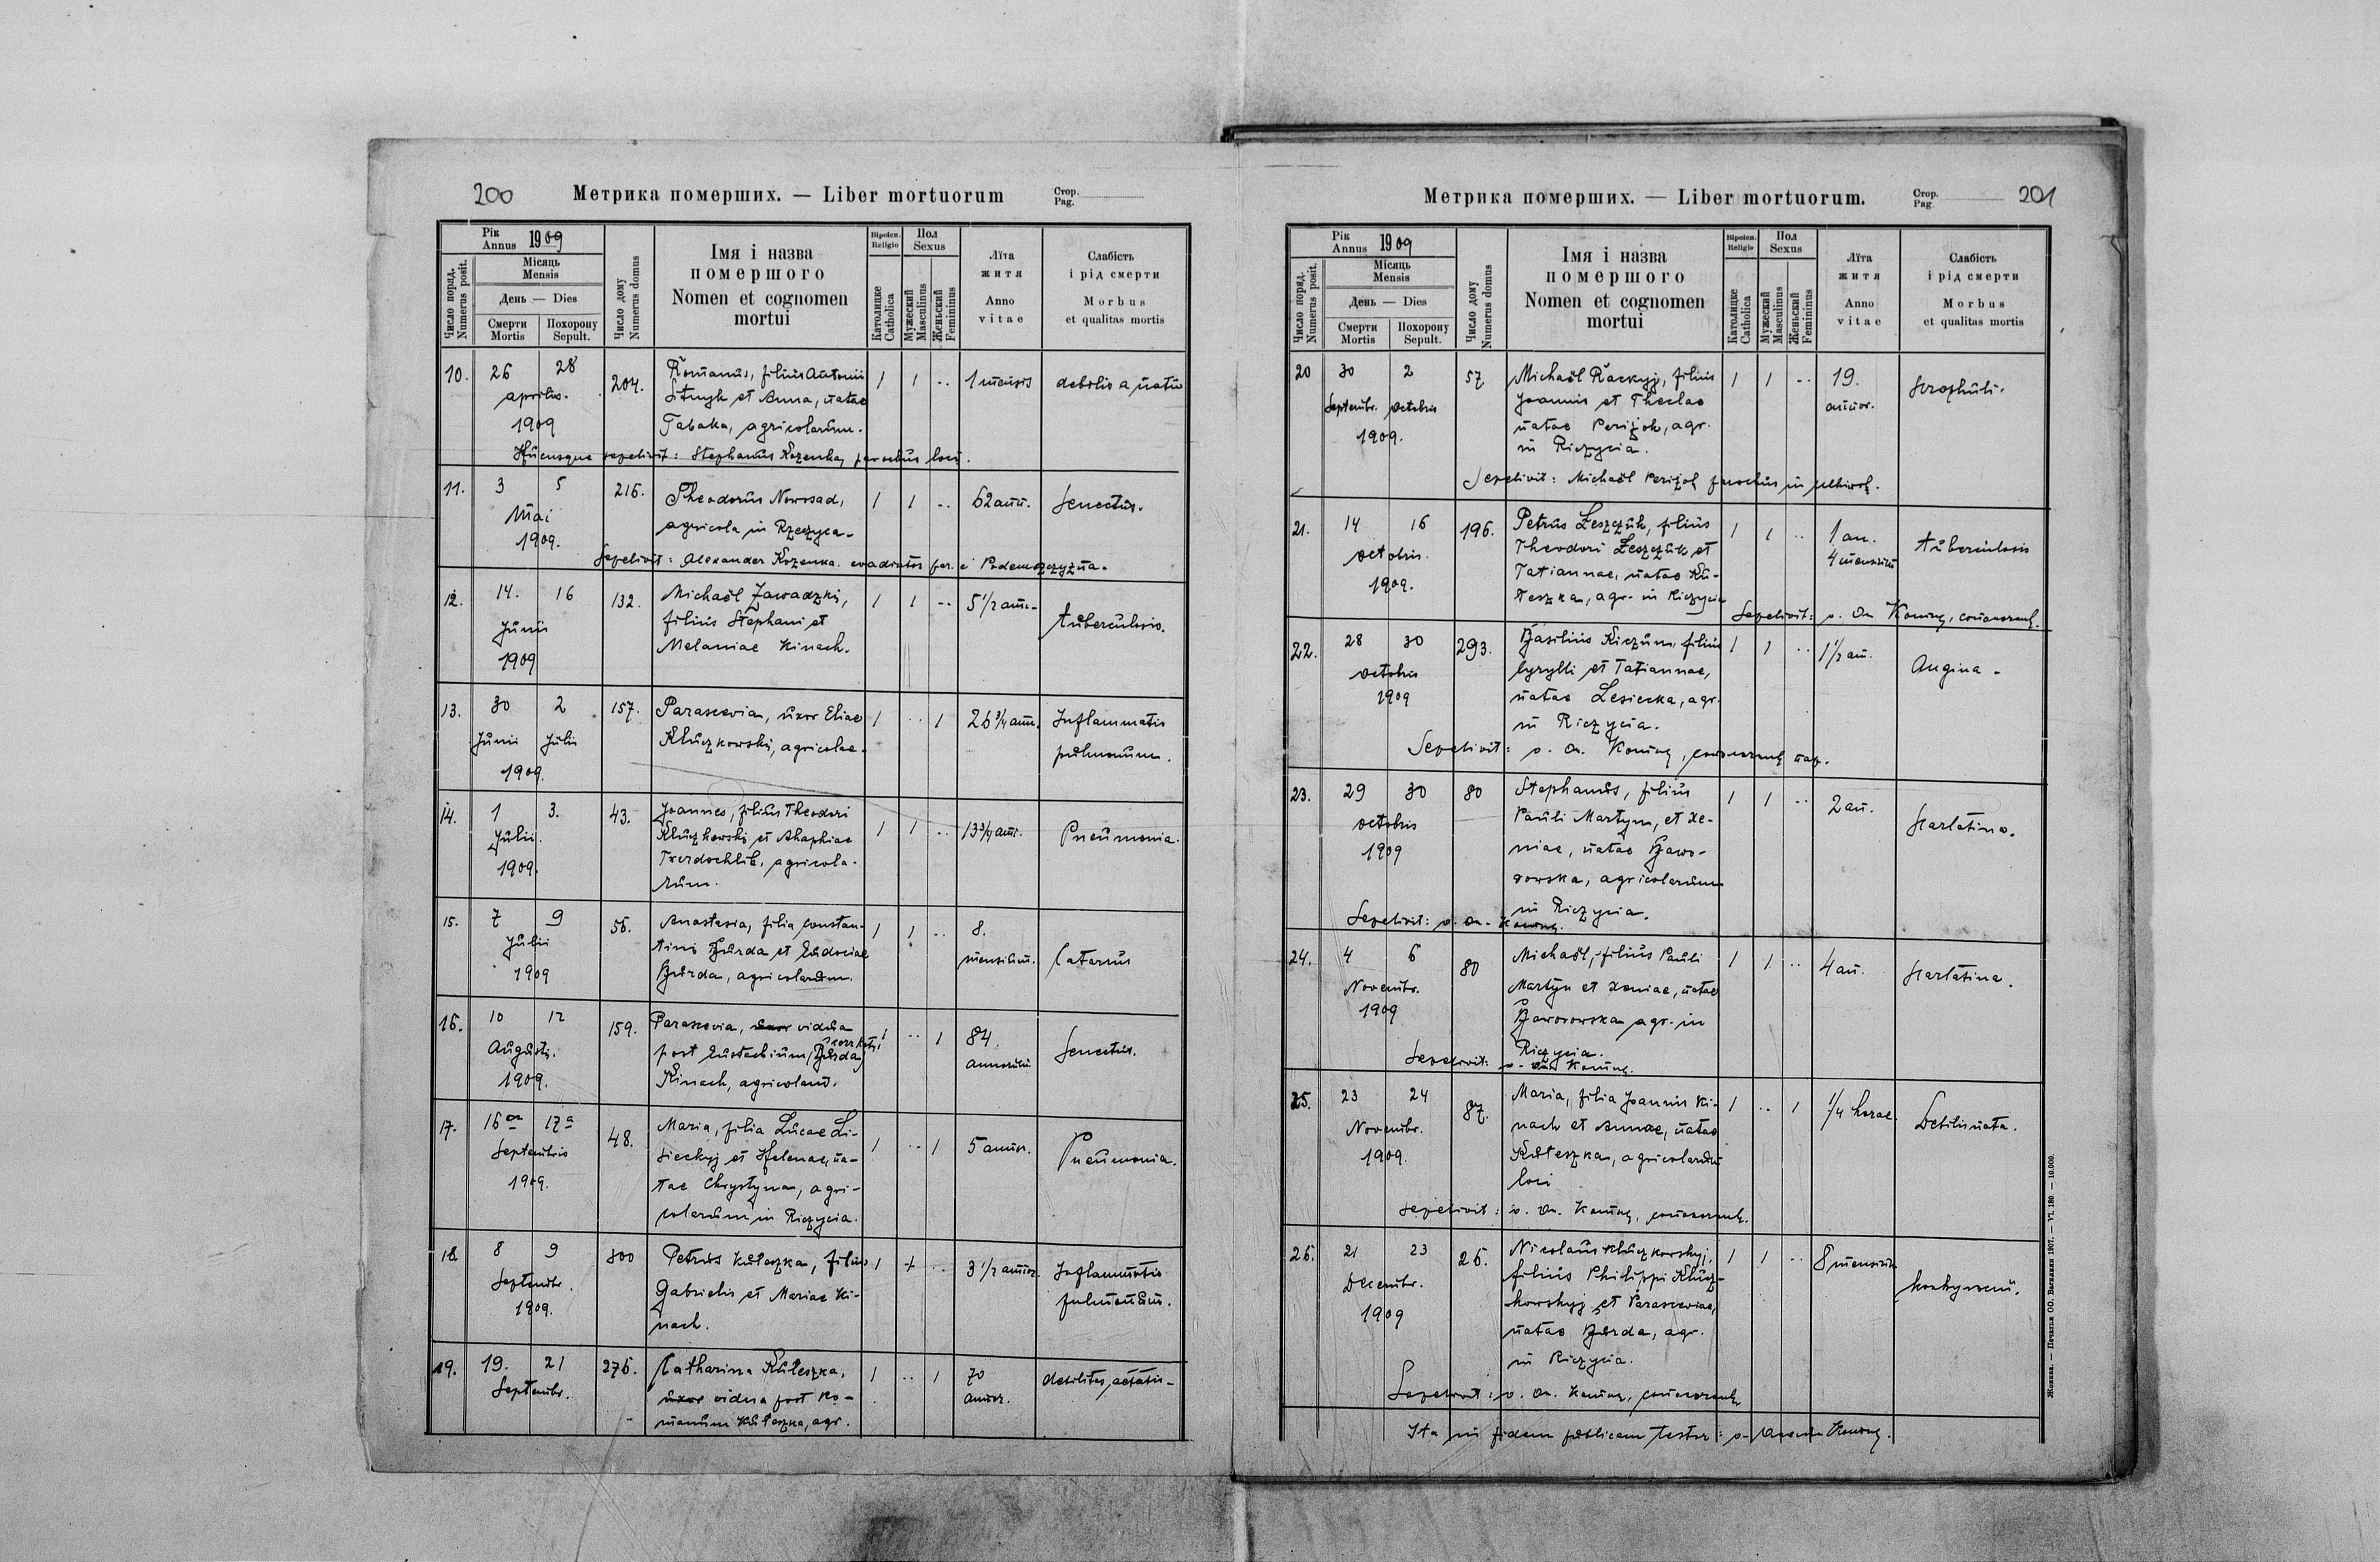 200 Метрика померших. — Liber mortuorum Стор. Pag.
Число поряд. Numerus posit.
Рік Annus 1909
Місяць Mensis
День — Dies
Смерти Mortis
Похорону Sepult.
Число дому Numerus domus
Імя і назва
помершого
Nomen et cognomen
mortui
Віроісп. Religio
Католицке Catholica
Пол Sexus
Мужеский Masculinus
Женьский Femininus
Лїта
житя
Anno
vitae
Слабість
і рід смерти
Morbus
et qualitas mortis
10. 26 28 204. Romanus, filius Antonii 1 1 .. 1 mensis debilis a natu
aprilis. Stmyk et Anna, natae
1909 Tabaka, agricolarum.
Hucusque sepelivit: Stephanus Kozenka, parochus loci.
11. 3 5 216. Theodorus Nowosad, 1 1 .. 62 ann. Senectus.
Mai agricola in Rzeczyca.
1909.
Sepelivit: Alexander Kozenka. par. e Podemszczyzna.
12. 14. 16 132. Michaël Zawadzki, 1 1 .. 5 1/2 ann. tuberculosis.
Junii filius Stephani et
1909 Melaniae Kinach.
13. 30 2 157. Parascevia, uxor Eliae 1 .. 1 26 3/4 ann. Inflammatio
Junii Julii Kluczkowski, agricolae. pulmonum.
1909.
14. 1 3. 43. Joannes, filius Theodori 1 1 .. 13 3/4 ann. Pneumonia.
Julii. Kluczkowski, et Ahaphiae
1909. Twerdochlib, agricola-
rum.
15. 7 9 56. Anastasia, filia Constan- 1 1 .. 8. Catarrus
Julii tini Burda et Eudociae mensium.
1909 Burda, agricolarum.
16. 10 12 159. Parascevia, uxor vidua 1 .. 1 84. Senectus.
Augusti. post Eustachium, Burda annorum
1909. Kinach, agricolarum.
17. 16a 17a 48. Maria, filia Lucae Li- 1 .. 1 5 annor. Pneumonia.
Septembris sieckyj et Helenae, na-
1909. tae Chrystyna, agri-
colarum in Riczycia.
18. 8 9 300 Petrus Kuleszka, filius 1 + .. 3 1/2 annor. Inflammatio
Septembr. Gabrielis et Mariae Ki- pulmonum.
1909. nach.
19. 19. 21 276. Catharina Kuleszka, 1 .. 1 70 debilitas aetatis.
Septembr. uxor vidua post Ro- annor.
manum Kuleszka, agr.
Метрика померших. — Liber mortuorum. Стор. Pag. 201
Число поряд. Numerus posit.
Рік Annus 1909
Місяць Mensis
День — Dies
Смерти Mortis
Похорону Sepult.
Число дому Numerus domus
Імя і назва
помершого
Nomen et cognomen
mortui
Віроісп. Religio
Католицке Catholica
Пол Sexus
Мужеский Masculinus
Женьский Femininus
Лїта
житя
Anno
vitae
Слабість
і рід смерти
Morbus
et qualitas mortis
20 30 2 57 Michaël Rackyj, filius 1 1 .. 19. Scrophuli.
Septembr. Octobris Joannis et Theclae annor.
1909. natae Perizok, agr.
in Riczycia.
Sepelivit: Michaël Perizok parochus in
21. 14 16 196. Petrus Leszczuk, filius 1 1 .. 1 an. tuberculosis
octobris. Theodori Leszczuk et 4 mensium
1909. Tatiannae, natae Ku-
leszka, agr. in Riczycia
Sepelivit: o. On. Koning,
22. 28 30 293. Basilius Kiczum, filius 1 1 .. 1 1/2 an. Angina.
octobris Cyrylli et Tatiannae,
1909 natae Lesiecka, agr.
in Riczycia.
Sepelivit: o. On. Koning,
23. 29 30 80 Stephanus, filius 1 1 .. 2 an. Scarlatina.
octobris Pauli Martyn, et Xe-
1909 niae, natae Bawo-
rowska, agricolarum
in Riczycia.
Sepelivit: o. On. Koning.
24. 4 6 80 Michaël, filius Pauli 1 1 .. 4 an. Scarlatina.
Novembr. Martyn et Xeniae, natae
1909 Baworowska agr. in
Riczycia.
Sepelivit: o. On. Koning.
25. 23 24 87. Maria, filia Joannis Ki- 1 .. 1 1/4 horae. Debilis nata.
Novembr. nach et Annae, natae
1909. Kuleszka, agricolarum
loci
Sepelivit: o. On. Koning,
26. 21 23 26. Nicolaus Kluczkowskyj, 1 1 .. 8 mensium
Decembr. filius Philippi Klucz-
1909 kowskyj et Parasceviae,
natae Burda, agr.
in Riczycia.
Sepelivit: o. On. Koning,
Ita in fidem publicam testor: o. Koning.
Жовква. — Печатня ОО. Василиян 1907. — VI. 180. — 10.000.